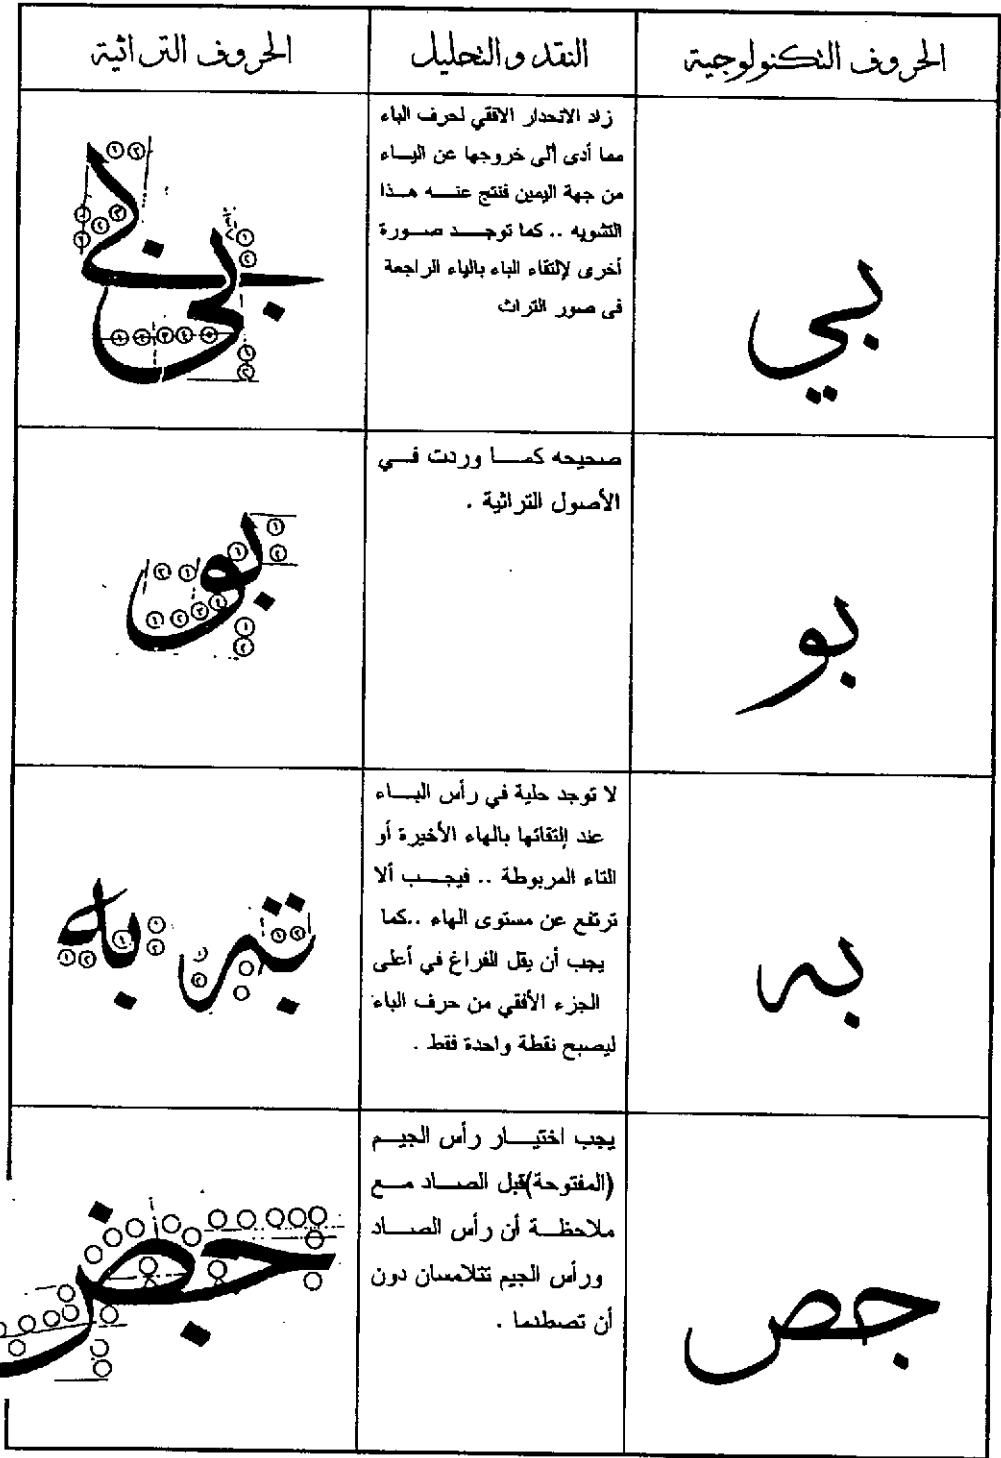 الحروف التكنولوجية
النقد والتحليل
الحروف التراثية
بي
زاد الانحدار الافقي لحرف الباء
مما أدى إلى خروجها عن الياء
من جهة اليمين فنتج عنه هذا
التشويه .. كما توجد صورة
أخرى لإلتقاء الباء بالياء الراجعة
فى صور التراث
بو
صحيحه كما وردت في
الأصول التراثية .
بو
به
لا توجد حلية في رأس الباء
عند إلتقائها بالهاء الأخيرة أو
التاء المربوطة .. فيجب ألا
ترتفع عن مستوى الهاء ..كما
يجب أن يقل الفراغ في أعلى
الجزء الأفقي من حرف الباء
ليصبح نقطة واحدة فقط .
بة به
جص
يجب اختيار رأس الجيم
(المفتوحة)قبل الصاد مع
ملاحظة أن رأس الصاد
ورأس الجيم تتلامسان دون
أن تصطدما .
جض